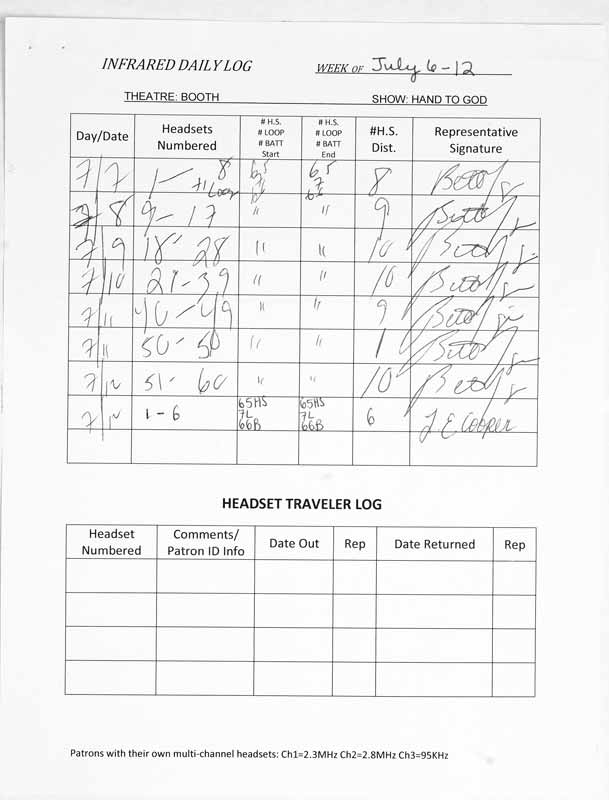 INFRARED DAILY LOG WEEK OF July 6-12
THEATRE: BOOTH SHOW: HAND TO GOD
Day/Date Headsets Numbered # H.S. # LOOP # BATT Start # H.S. # LOOP # BATT End #H.S. Dist. Representative Signature
7/7 1-8 65 65 8
+1 Loop 7 7
7/8 9-17 " " 9
7/9 18-28 " " 10
7/10 29-39 " " 10
7/11 40-49 " " 9
7/11 50-50 " " 1
7/12 51-60 " " 10
7/12 1-6 65HS 65HS 6 J. E. COOPER
7L 7L
66B 66B
HEADSET TRAVELER LOG
Headset Numbered Comments/ Patron ID Info Date Out Rep Date Returned Rep
Patrons with their own multi-channel headsets: Ch1=2.3MHz Ch2=2.8MHz Ch3=95KHz